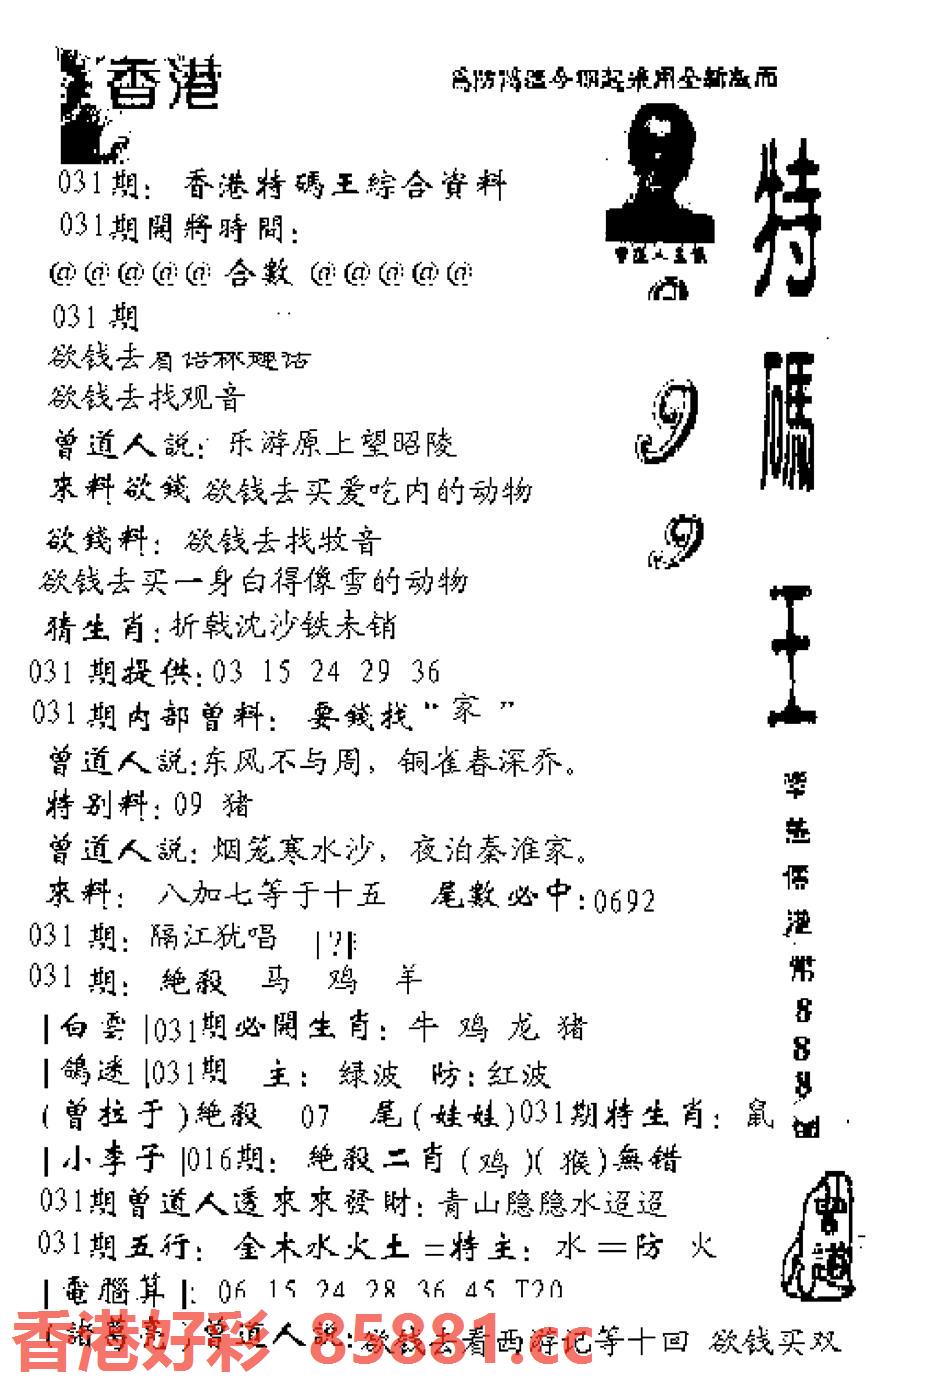 香港
031期：香港特碼王綜合資料
031期開將時間：
@@@@@ 合數 @@@@@
031期
欲钱去
欲钱去找观音
曾道人説：乐游原上望昭陵
來料欲錢 欲钱去买爱吃内的动物
欲錢料：欲钱去找牧音
欲钱去买一身白得像雪的动物
猜生肖：折戟沈沙铁未销
031期提供：03 15 24 29 36
031期内部曾料：要錢找“家”
曾道人説：东风不与周，铜雀春深乔。
特别料：09 猪
曾道人説：烟笼寒水沙，夜泊秦淮家。
來料：八加七等于十五 尾數必中：0692
031期：隔江犹唱 |?|
031期：絶殺 马 鸡 羊
|白雲|031期必開生肖：牛 鸡 龙 猪
|鴿迷|031期 主：绿波 防：红波
(曾拉于)絶殺 07 尾(娃娃)031期特生肖：鼠
|小李子|016期：絶殺二肖(鸡)(猴)無錯
031期曾道人透來來發財：青山隐隐水迢迢
031期五行：金木水火土=特主：水=防 火
|電腦算|：06 15 24 28 36 45 T20
(諸葛亮)曾道人説：欲钱去看西游记等十回 欲钱买双
香港好彩 85881.cc
特碼王
9
9
港幣888
曾道